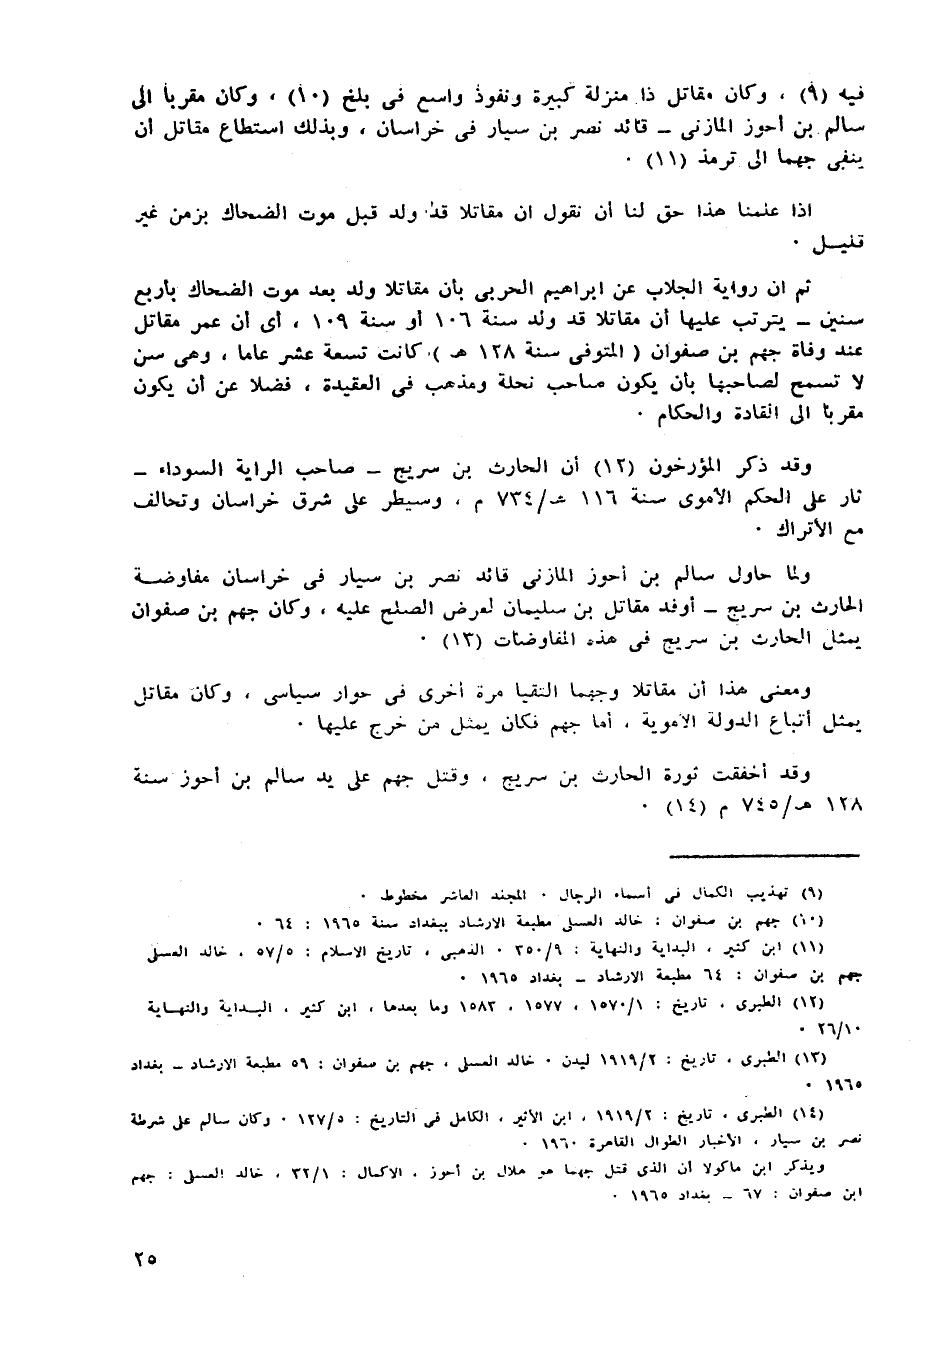 فيه (٩) ، وكان مقاتل ذا منزلة كبيرة ونفوذ واسع فى بلخ (١٠) ، وكان مقربا الى
سالم بن أحوز المازنى ــ قائد نصر بن سيار فى خراسان ، وبذلك استطاع مقاتل أن
ينفى جهما الى ترمذ (١١) ٠
اذا علمنا هذا حق لنا أن نقول ان مقاتلا قد ولد قبل موت الضحاك بزمن غير
قليـل ٠
ثم ان رواية الجلاب عن ابراهيم الحربى بأن مقاتلا ولد بعد موت الضحاك بأربع
سنين ــ يترتب عليها أن مقاتلا قد ولد سنة ١٠٦ أو سنة ١٠٩ ، أى أن عمر مقاتل
عند وفاة جهم بن صفوان ( المتوفى سنة ١٢٨ هـ ) كانت تسعة عشر عاما ، وهى سن
لا تسمح لصاحبها بأن يكون صاحب نحلة ومذهب فى العقيدة ، فضلا عن أن يكون
مقربا الى القادة والحكام ٠
وقد ذكر المؤرخون (١٢) أن الحارث بن سريج ــ صاحب الراية السوداء ــ
ثار على الحكم الأموى سنة ١١٦ هـ/٧٣٤ م ، وسيطر على شرق خراسان وتحالف
مع الأتراك ٠
ولما حاول سالم بن أحوز المازنى قائد نصر بن سيار فى خراسان مفاوضـة
الحارث بن سريج ــ أوفد مقاتل بن سليمان لعرض الصلح عليه ، وكان جهم بن صفوان
يمثل الحارث بن سريج فى هذه المفاوضات (١٣) ٠
ومعنى هذا أن مقاتلا وجهما التقيا مرة أخرى فى حوار سياسى ، وكان مقاتل
يمثل أتباع الدولة الأموية ، أما جهم فكان يمثل من خرج عليها ٠
وقد أخفقت ثورة الحارث بن سريج ، وقتل جهم على يد سالم بن أحوز سنة
١٢٨ هـ/٧٤٥ م (١٤) ٠
(٩) تهذيب الكمال فى أسماء الرجال ٠ المجلد العاشر مخطوط ٠
(١٠) جهم بن صفوان : خالد العسلى مطبعة الارشاد ببغداد سنة ١٩٦٥ : ٦٤ ٠
(١١) ابن كثير ، البداية والنهاية : ٣٥٠/٩ ٠ الذهبى ، تاريخ الاسلام : ٥٧/٥ ، خالد العسلى
جهم بن صفوان : ٦٤ مطبعة الارشاد ــ بغداد ١٩٦٥ ٠
(١٢) الطبرى ، تاريخ : ١٥٧٠/١ ، ١٥٧٧ ، ١٥٨٣ وما بعدها ، ابن كثير ، البـداية والنهـاية
٢٦/١٠ ٠
(١٣) الطبرى ، تاريخ : ١٩١٩/٢ ليدن ٠ خالد العسلى ، جهم بن صفوان : ٥٩ مطبعة الارشاد ــ بغداد
١٩٦٥ ٠
(١٤) الطبرى ، تاريخ : ١٩١٩/٢ ، ابن الأثير ، الكامل فى التاريخ : ١٢٧/٥ ٠ وكان سالم على شرطة
نصر بن سيار ، الأخبار الطوال القاهرة ١٩٦٠ ٠
ويذكر ابن ماكولا أن الذى قتل جهما هو هلال بن أحوز ، الاكمال : ٣٢/١ ، خالد العسلى : جهم
ابن صفوان : ٦٧ ــ بغداد ١٩٦٥ ٠
٢٥